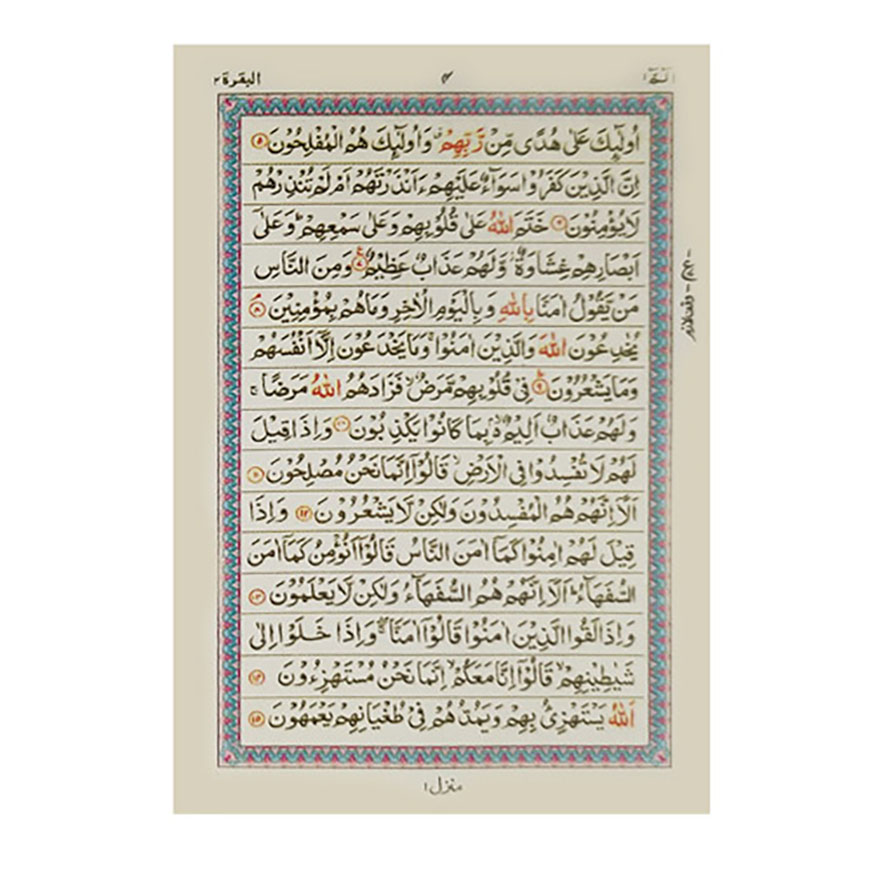 الٓمّٓ ١
٤
البقرة ٢
اُولٰٓئِكَ عَلٰى هُدًى مِّنْ رَّبِّهِمْ ۙ وَاُولٰٓئِكَ هُمُ الْمُفْلِحُوْنَ ﴿۵﴾
اِنَّ الَّذِيْنَ كَفَرُوْا سَوَآءٌ عَلَيْهِمْ ءَاَنْذَرْتَهُمْ اَمْ لَمْ تُنْذِرْهُمْ
لَا يُؤْمِنُوْنَ ﴿۶﴾ خَتَمَ اللّٰهُ عَلٰى قُلُوْبِهِمْ وَعَلٰى سَمْعِهِمْ ؕ وَعَلٰٓى
اَبْصَارِهِمْ غِشَاوَةٌ ۫ وَّلَهُمْ عَذَابٌ عَظِيْمٌ ﴿۷﴾ وَمِنَ النَّاسِ
مَنْ يَّقُوْلُ اٰمَنَّا بِاللّٰهِ وَبِالْيَوْمِ الْاٰخِرِ وَمَا هُمْ بِمُؤْمِنِيْنَ ﴿۸﴾
يُخٰدِعُوْنَ اللّٰهَ وَالَّذِيْنَ اٰمَنُوْا ۚ وَمَا يَخْدَعُوْنَ اِلَّآ اَنْفُسَهُمْ
وَمَا يَشْعُرُوْنَ ﴿۹﴾ فِىْ قُلُوْبِهِمْ مَّرَضٌ ۙ فَزَادَهُمُ اللّٰهُ مَرَضًا ۚ
وَلَهُمْ عَذَابٌ اَلِيْمٌ ۢ ۙ بِمَا كَانُوْا يَكْذِبُوْنَ ﴿۱۰﴾ وَاِذَا قِيْلَ
لَهُمْ لَا تُفْسِدُوْا فِى الْاَرْضِ ۙ قَالُوْٓا اِنَّمَا نَحْنُ مُصْلِحُوْنَ ﴿۱۱﴾
اَلَآ اِنَّهُمْ هُمُ الْمُفْسِدُوْنَ وَلٰكِنْ لَّا يَشْعُرُوْنَ ﴿۱۲﴾ وَاِذَا
قِيْلَ لَهُمْ اٰمِنُوْا كَمَآ اٰمَنَ النَّاسُ قَالُوْٓا اَنُؤْمِنُ كَمَآ اٰمَنَ
السُّفَهَآءُ ؕ اَلَآ اِنَّهُمْ هُمُ السُّفَهَآءُ وَلٰكِنْ لَّا يَعْلَمُوْنَ ﴿۱۳﴾
وَاِذَا لَقُوا الَّذِيْنَ اٰمَنُوْا قَالُوْٓا اٰمَنَّا ۖۚ وَاِذَا خَلَوْا اِلٰى
شَيٰطِيْنِهِمْ ۙ قَالُوْٓا اِنَّا مَعَكُمْ ۙ اِنَّمَا نَحْنُ مُسْتَهْزِءُوْنَ ﴿۱۴﴾
اَللّٰهُ يَسْتَهْزِئُ بِهِمْ وَيَمُدُّهُمْ فِىْ طُغْيَانِهِمْ يَعْمَهُوْنَ ﴿۱۵﴾
منزل ١